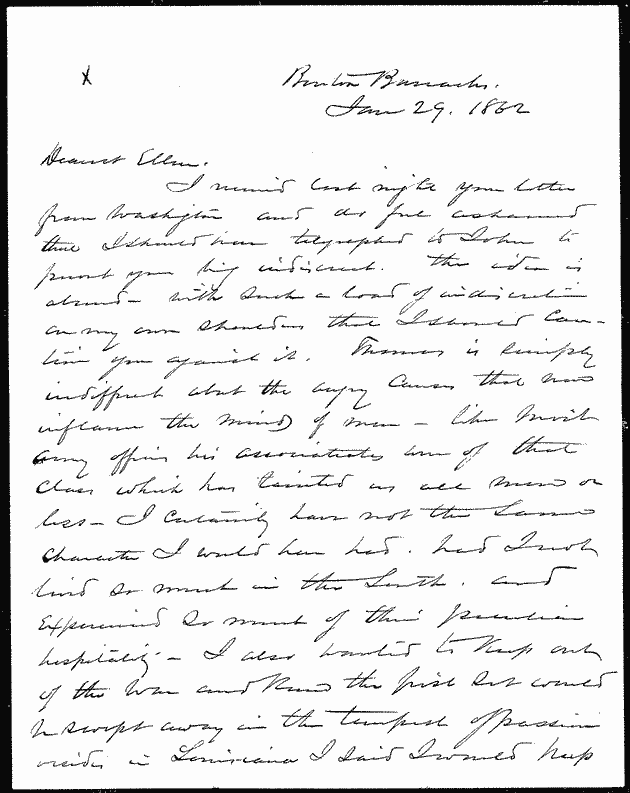 X
Benton Barracks.
Jan 29. 1862
Dearest Ellen.
I received last night your letter
from Washington and do feel ashamed
that I should have telegraphed to John to
prevent your being indiscreet. The idea is
absurd - with such a load of indiscretion
on my own shoulders that I should Cau-
tion you against it. Thomas is simply
indifferent about the angry Causes that now
influence the minds of men - like most
army officers his associates are of that
class which has tainted us all more or
less - I certainly have not the same
character I would have had. had I not
lived so much in the South. and
Experienced so much of their peculiar
hospitality - I also wanted to Keep out
of the War and Knew the first set would
be swept away in the tempest of passion
besides in Louisiana I said I would Keep